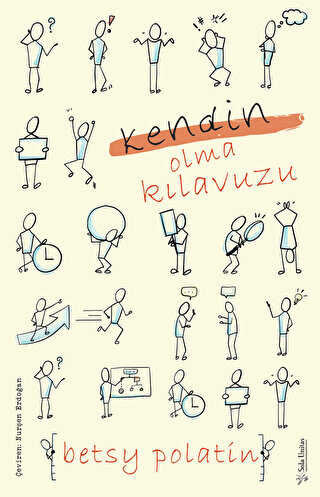 kendin
olma
kılavuzu
Çeviren: Nurşen Erdoğan
betsy polatin
Sola Unitas